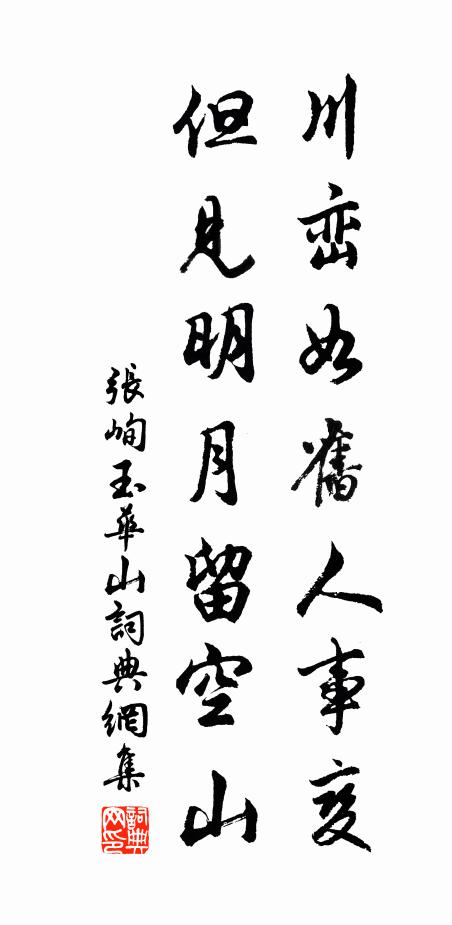 川峦如舊人事变
但見明月留空山
張峋玉華山詞典網集
詞典网印